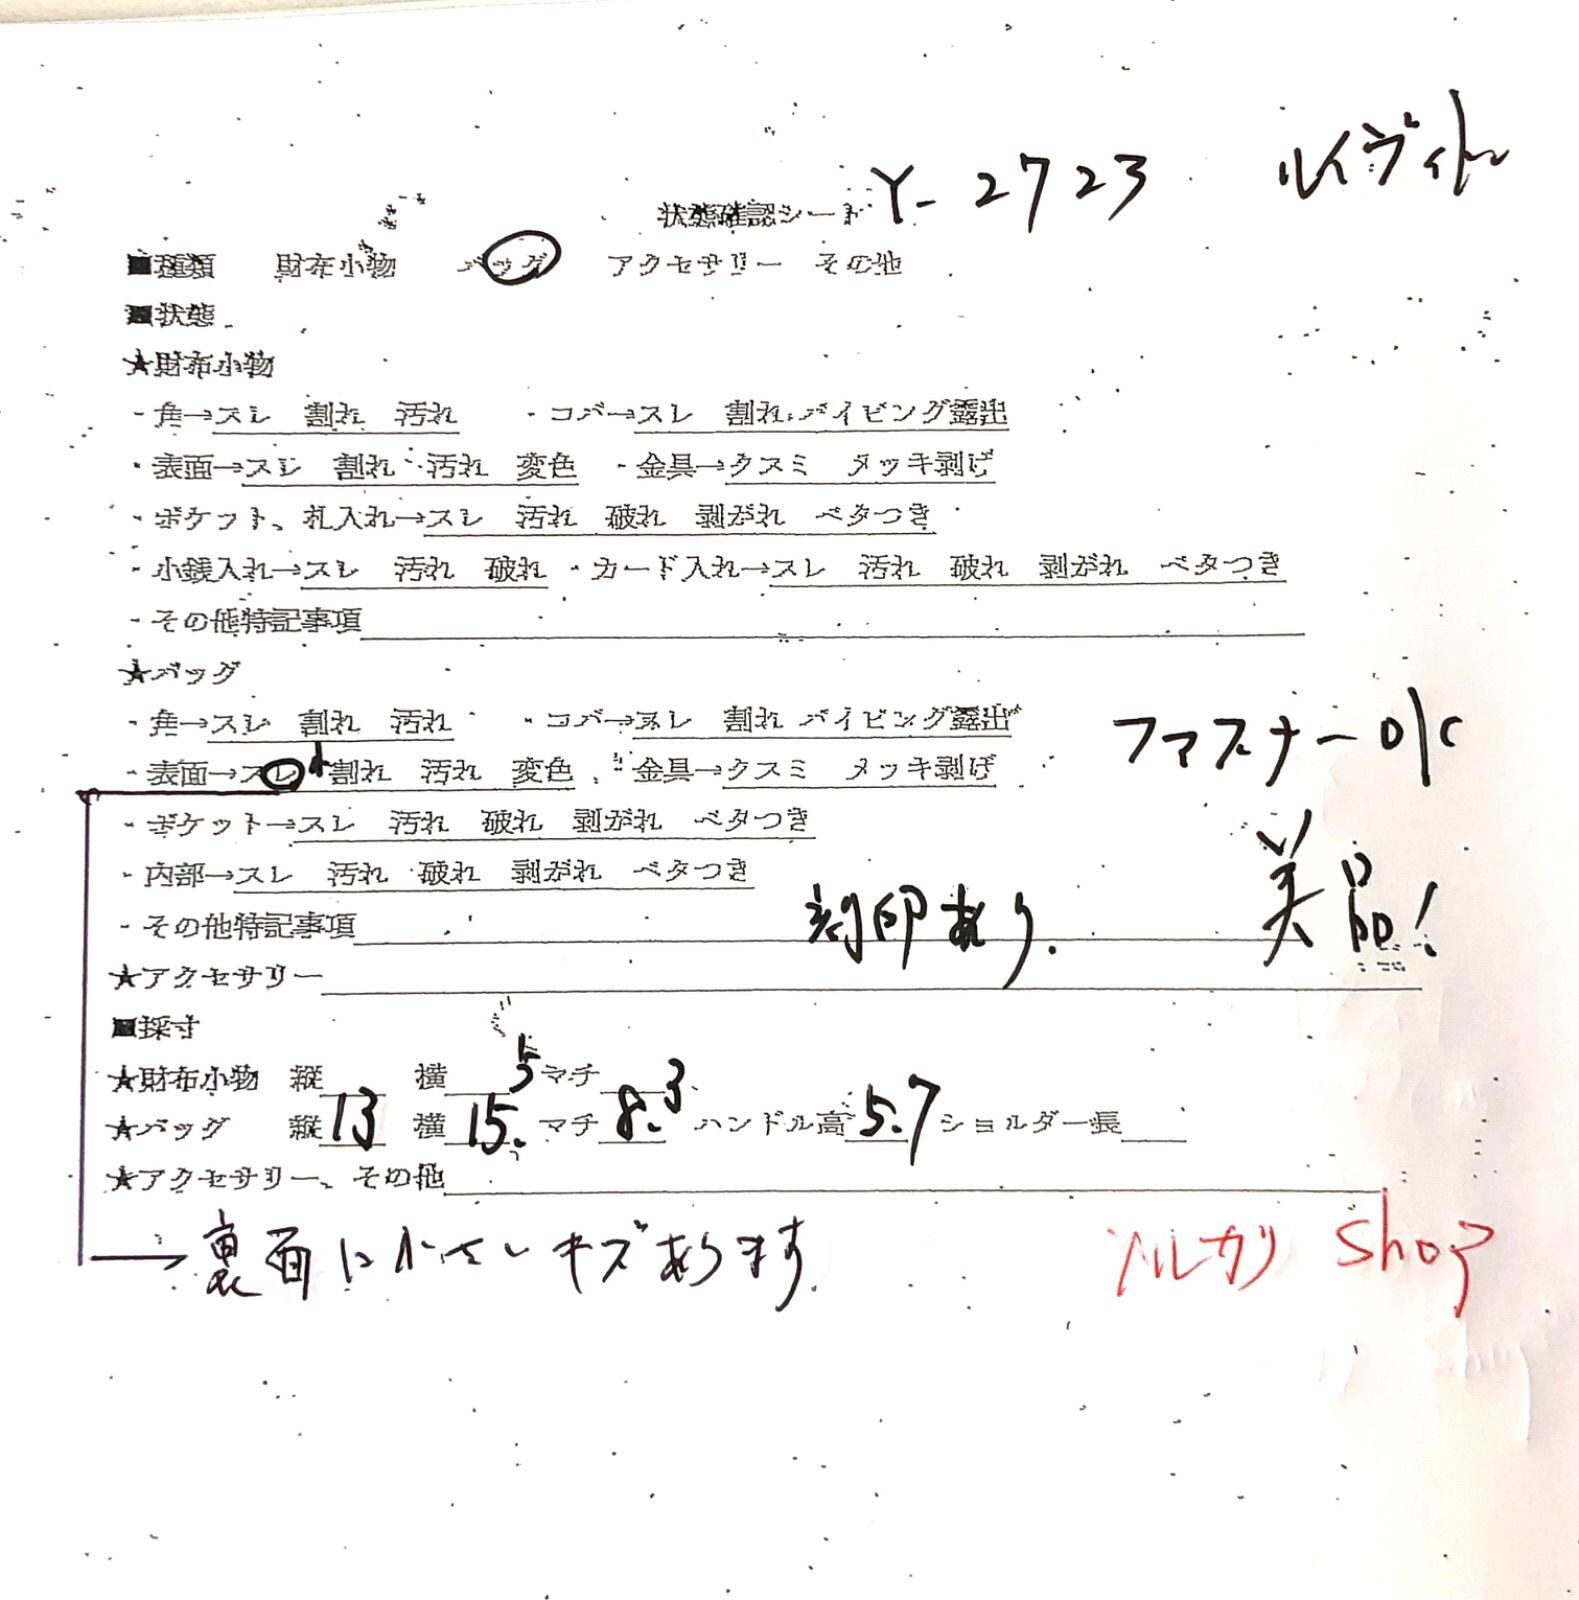 ルイヴィトン
状態確認シート Y-2723
■種類 財布小物 バッグ アクセサリー その他
■状態
★財布小物
・角→スレ 割れ 汚れ ・コバ→スレ 割れ パイピング露出
・表面→スレ 割れ 汚れ 変色 ・金具→クスミ メッキ剥げ
・ポケット、札入れ→スレ 汚れ 破れ 剥がれ ベタつき
・小銭入れ→スレ 汚れ 破れ ・カード入れ→スレ 汚れ 破れ 剥がれ ベタつき
・その他特記事項
★バッグ
・角→スレ 割れ 汚れ ・コバ→スレ 割れ パイピング露出
ファスナーO/C
・表面→スレ 小 割れ 汚れ 変色 ・金具→クスミ メッキ剥げ
・ポケット→スレ 汚れ 破れ 剥がれ ベタつき
・内部→スレ 汚れ 破れ 剥がれ ベタつき
美品!
・その他特記事項 刻印あり.
★アクセサリー
■採寸
★財布小物 縦 横 マチ
★バッグ 縦13 横15.5 マチ8.3 ハンドル高5.7 ショルダー長
★アクセサリー、その他
→裏面に小さいキズあります.
メルカリ Shop